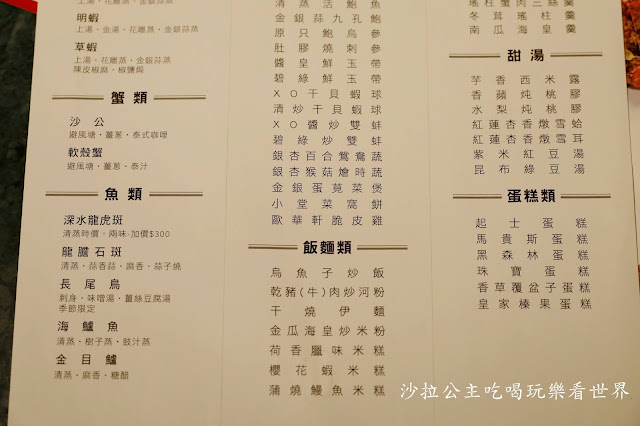 上湯．花雕蒸．金銀蒜蒸
明蝦
上湯．金湯．花雕蒸．金銀蒜蒸
草蝦
上湯．花雕蒸．金銀蒜蒸
陳皮椒麻．椒鹽焗
蟹類
沙公
避風塘．薑蔥．泰式咖哩
軟殼蟹
避風塘．薑蔥．泰汁
魚類
深水龍虎斑
清蒸時價，兩味-加價$300
龍膽石斑
清蒸．蒜香蒜．麻香．蒜子燒
長尾鳥
刺身．味噌湯．薑絲豆腐湯
季節限定
海鱸魚
清蒸．樹子蒸．豉汁蒸
金目鱸
清蒸．麻香．糖醋
清蒸活鮑魚
金銀蒜九孔鮑
原只鮑烏參
肚膠燒刺參
醬皇鮮玉帶
碧綠鮮玉帶
XO干貝蝦球
清炒干貝蝦球
XO醬炒雙蚌
碧綠炒雙蚌
銀杏百合鴛鴦蔬
銀杏猴菇燴時蔬
金銀蛋莧菜煲
小堂菜窩餅
歐華軒脆皮雞
飯麵類
烏魚子炒飯
乾豬(牛)肉炒河粉
干燒伊麵
金瓜海皇炒米粉
荷香臘味米糕
櫻花蝦米糕
蒲燒鰻魚米糕
瑤柱蟹肉三絲羹
冬茸瑤柱羹
南瓜海皇羹
甜湯
芋香西米露
香蘋炖桃膠
水梨炖桃膠
紅蓮杏香燉雪蛤
紅蓮杏香燉雪耳
紫米紅豆湯
昆布綠豆湯
蛋糕類
起士蛋糕
馬貴斯蛋糕
黑森林蛋糕
珠寶蛋糕
香草覆盆子蛋糕
皇家榛果蛋糕
沙拉公主吃喝玩樂看世界